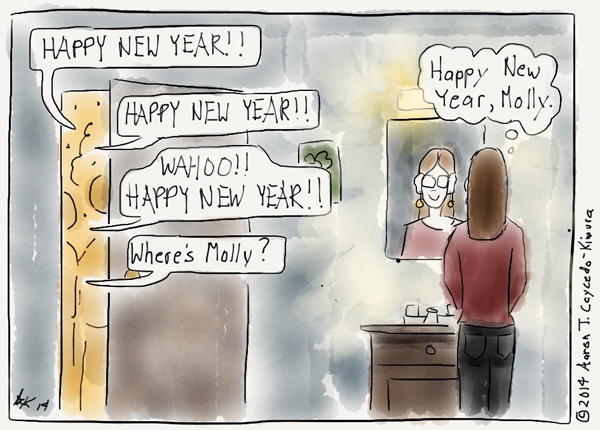 HAPPY NEW YEAR!!
HAPPY NEW YEAR!!
WAHOO!!
HAPPY NEW YEAR!!
Where's Molly?
Happy New
Year, Molly.
AJCK 14
© 2014 Aaron T. Caycedo-Kimura